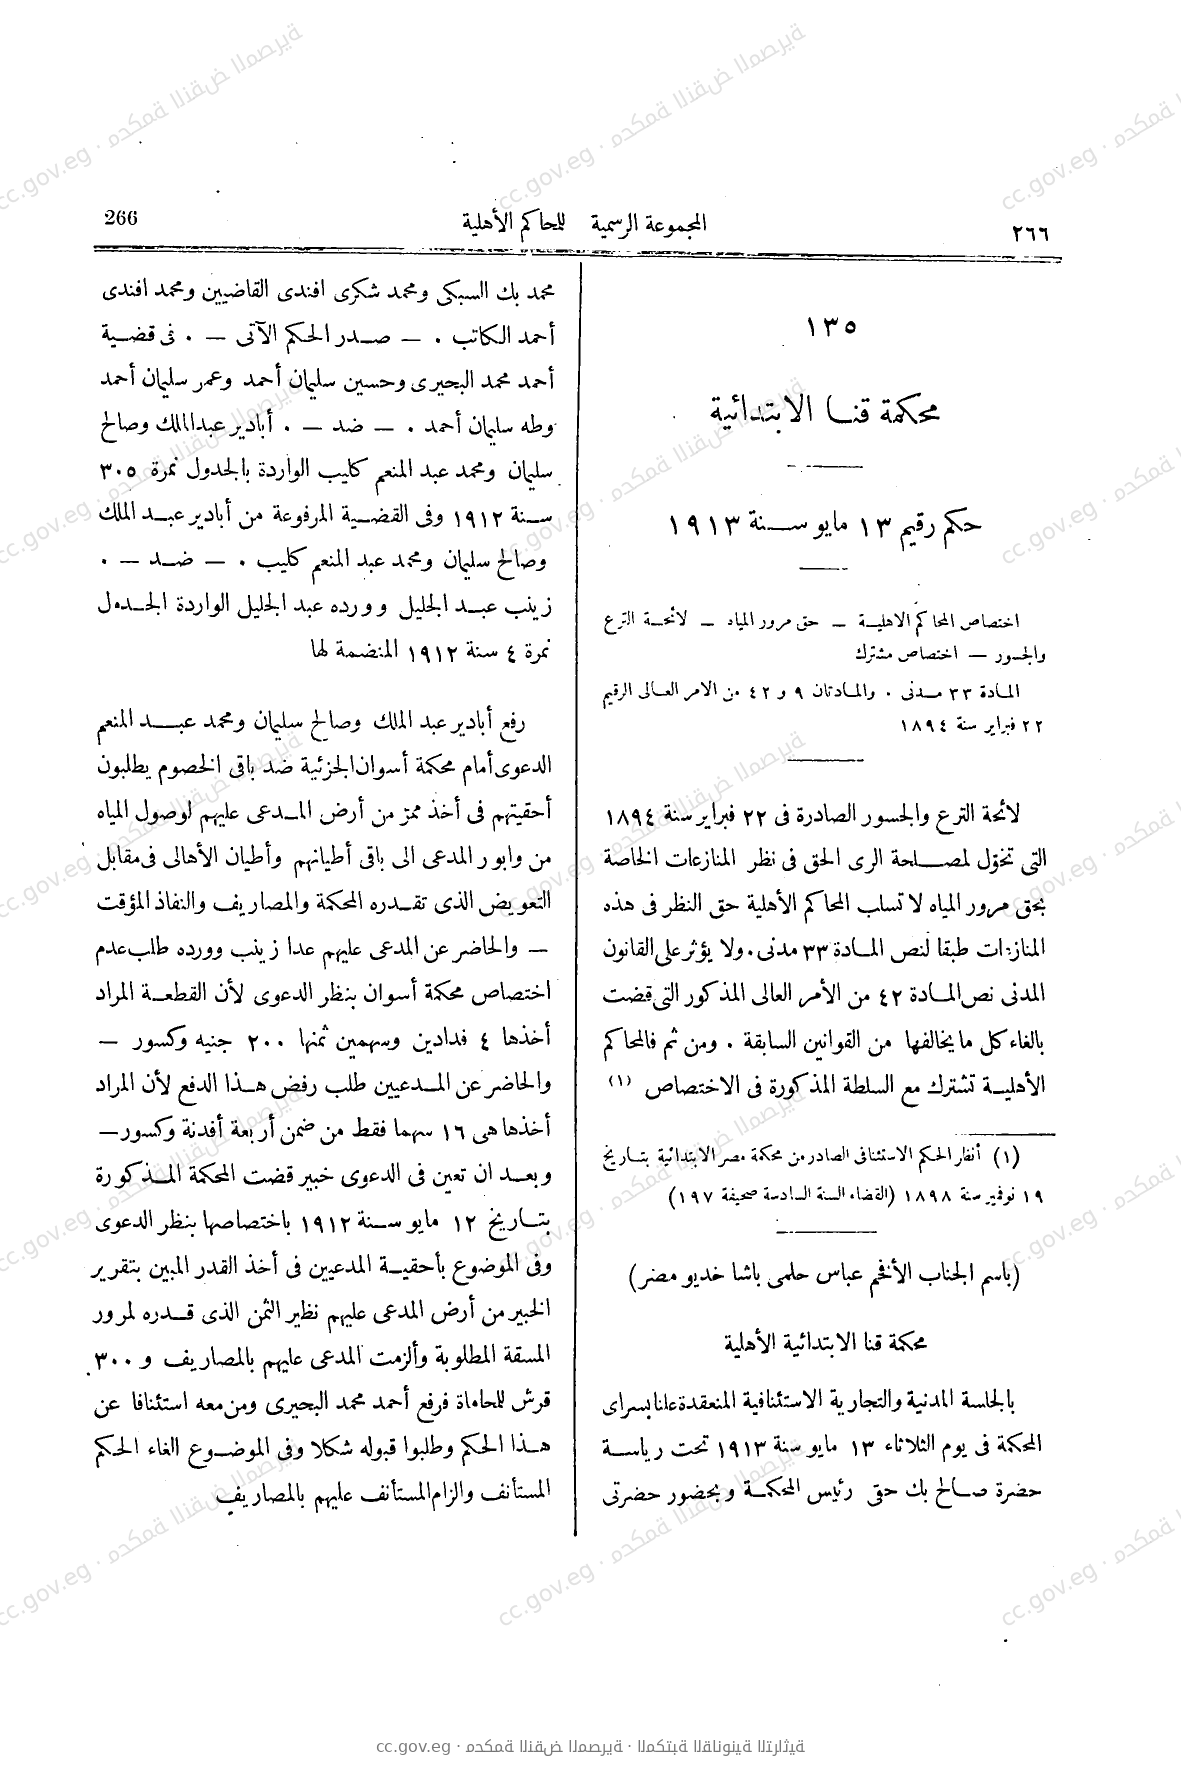 ٢٦٦
المجموعة الرسمية للمحاكم الأهلية
266
١٣٥
محكمة قنا الابتدائية
حكم رقيم ١٣ مايو سنة ١٩١٣
اختصاص المحاكم الاهلية – حق مرور المياه – لائحة الترع
والجسور – اختصاص مشترك
المادة ٣٣ مدنى . والمادتان ٩ و ٤٢ من الامر العالى الرقيم
٢٢ فبراير سنة ١٨٩٤
لائحة الترع والجسور الصادرة فى ٢٢ فبراير سنة ١٨٩٤
التى تخوّل لمصلحة الرى الحق فى نظر المنازعات الخاصة
بحق مرور المياه لا تسلب المحاكم الأهلية حق النظر فى هذه
المنازعات طبقا لنص المادة ٣٣ مدنى . ولا يؤثر على القانون
المدنى نص المادة ٤٢ من الأمر العالى المذكور التى قضت
بالغاء كل ما يخالفها من القوانين السابقة . ومن ثم فالمحاكم
الأهلية تشترك مع السلطة المذكورة فى الاختصاص (١)
(١) أنظر الحكم الاستئنافى الصادر من محكمة مصر الابتدائية بتاريخ
١٩ نوفمبر سنة ١٨٩٨ (القضاء السنة السادسة صحيفة ١٩٧)
(باسم الجناب الأفخم عباس حلمى باشا خديو مصر)
محكمة قنا الابتدائية الأهلية
بالجلسة المدنية والتجارية الاستئنافية المنعقدة علنا بسراى
المحكمة فى يوم الثلاثاء ١٣ مايو سنة ١٩١٣ تحت رياسة
حضرة صالح بك حقى رئيس المحكمة وبحضور حضرتى
محمد بك السبكى ومحمد شكرى افندى القاضيين ومحمد افندى
أحمد الكاتب . – صدر الحكم الآتى – . فى قضية
أحمد محمد البحيرى وحسين سليمان أحمد وعمر سليمان أحمد
وطه سليمان أحمد . – ضد – . أبادير عبد الملك وصالح
سليمان ومحمد عبد المنعم كليب الواردة بالجدول نمرة ٣٠٥
سنة ١٩١٢ وفى القضية المرفوعة من أبادير عبد الملك
وصالح سليمان ومحمد عبد المنعم كليب . – ضد – .
زينب عبد الجليل وورده عبد الجليل الواردة الجدول
نمرة ٤ سنة ١٩١٢ المنضمة لها
رفع أبادير عبد الملك وصالح سليمان ومحمد عبد المنعم
الدعوى أمام محكمة أسوان الجزئية ضد باقى الخصوم يطلبون
أحقيتهم فى أخذ ممرّ من أرض المدعى عليهم لوصول المياه
من وابور المدعى الى باقى أطيانهم وأطيان الأهالى فى مقابل
التعويض الذى تقدره المحكمة والمصاريف والنفاذ المؤقت
– والحاضر عن المدعى عليهم عدا زينب وورده طلب عدم
اختصاص محكمة أسوان بنظر الدعوى لأن القطعة المراد
أخذها ٤ فدادين وسهمين ثمنها ٢٠٠ جنيه وكسور –
والحاضر عن المدعيين طلب رفض هذا الدفع لأن المراد
أخذها هى ١٦ سهما فقط من ضمن أربعة أفدنة وكسور –
وبعد ان تعين فى الدعوى خبير قضت المحكمة المذكورة
بتاريخ ١٢ مايو سنة ١٩١٢ باختصاصها بنظر الدعوى
وفى الموضوع بأحقية المدعيين فى أخذ القدر المبين بتقرير
الخبير من أرض المدعى عليهم نظير الثمن الذى قدره لمرور
المسقة المطلوبة وألزمت المدعى عليهم بالمصاريف و ٣٠٠
قرش للمحاماة فرفع أحمد محمد البحيرى ومن معه استئنافا عن
هذا الحكم وطلبوا قبوله شكلا وفى الموضوع الغاء الحكم
المستأنف والزام المستأنف عليهم بالمصاريف
cc.gov.eg · محكمة النقض المصرية · المكتبة القانونية التراثية